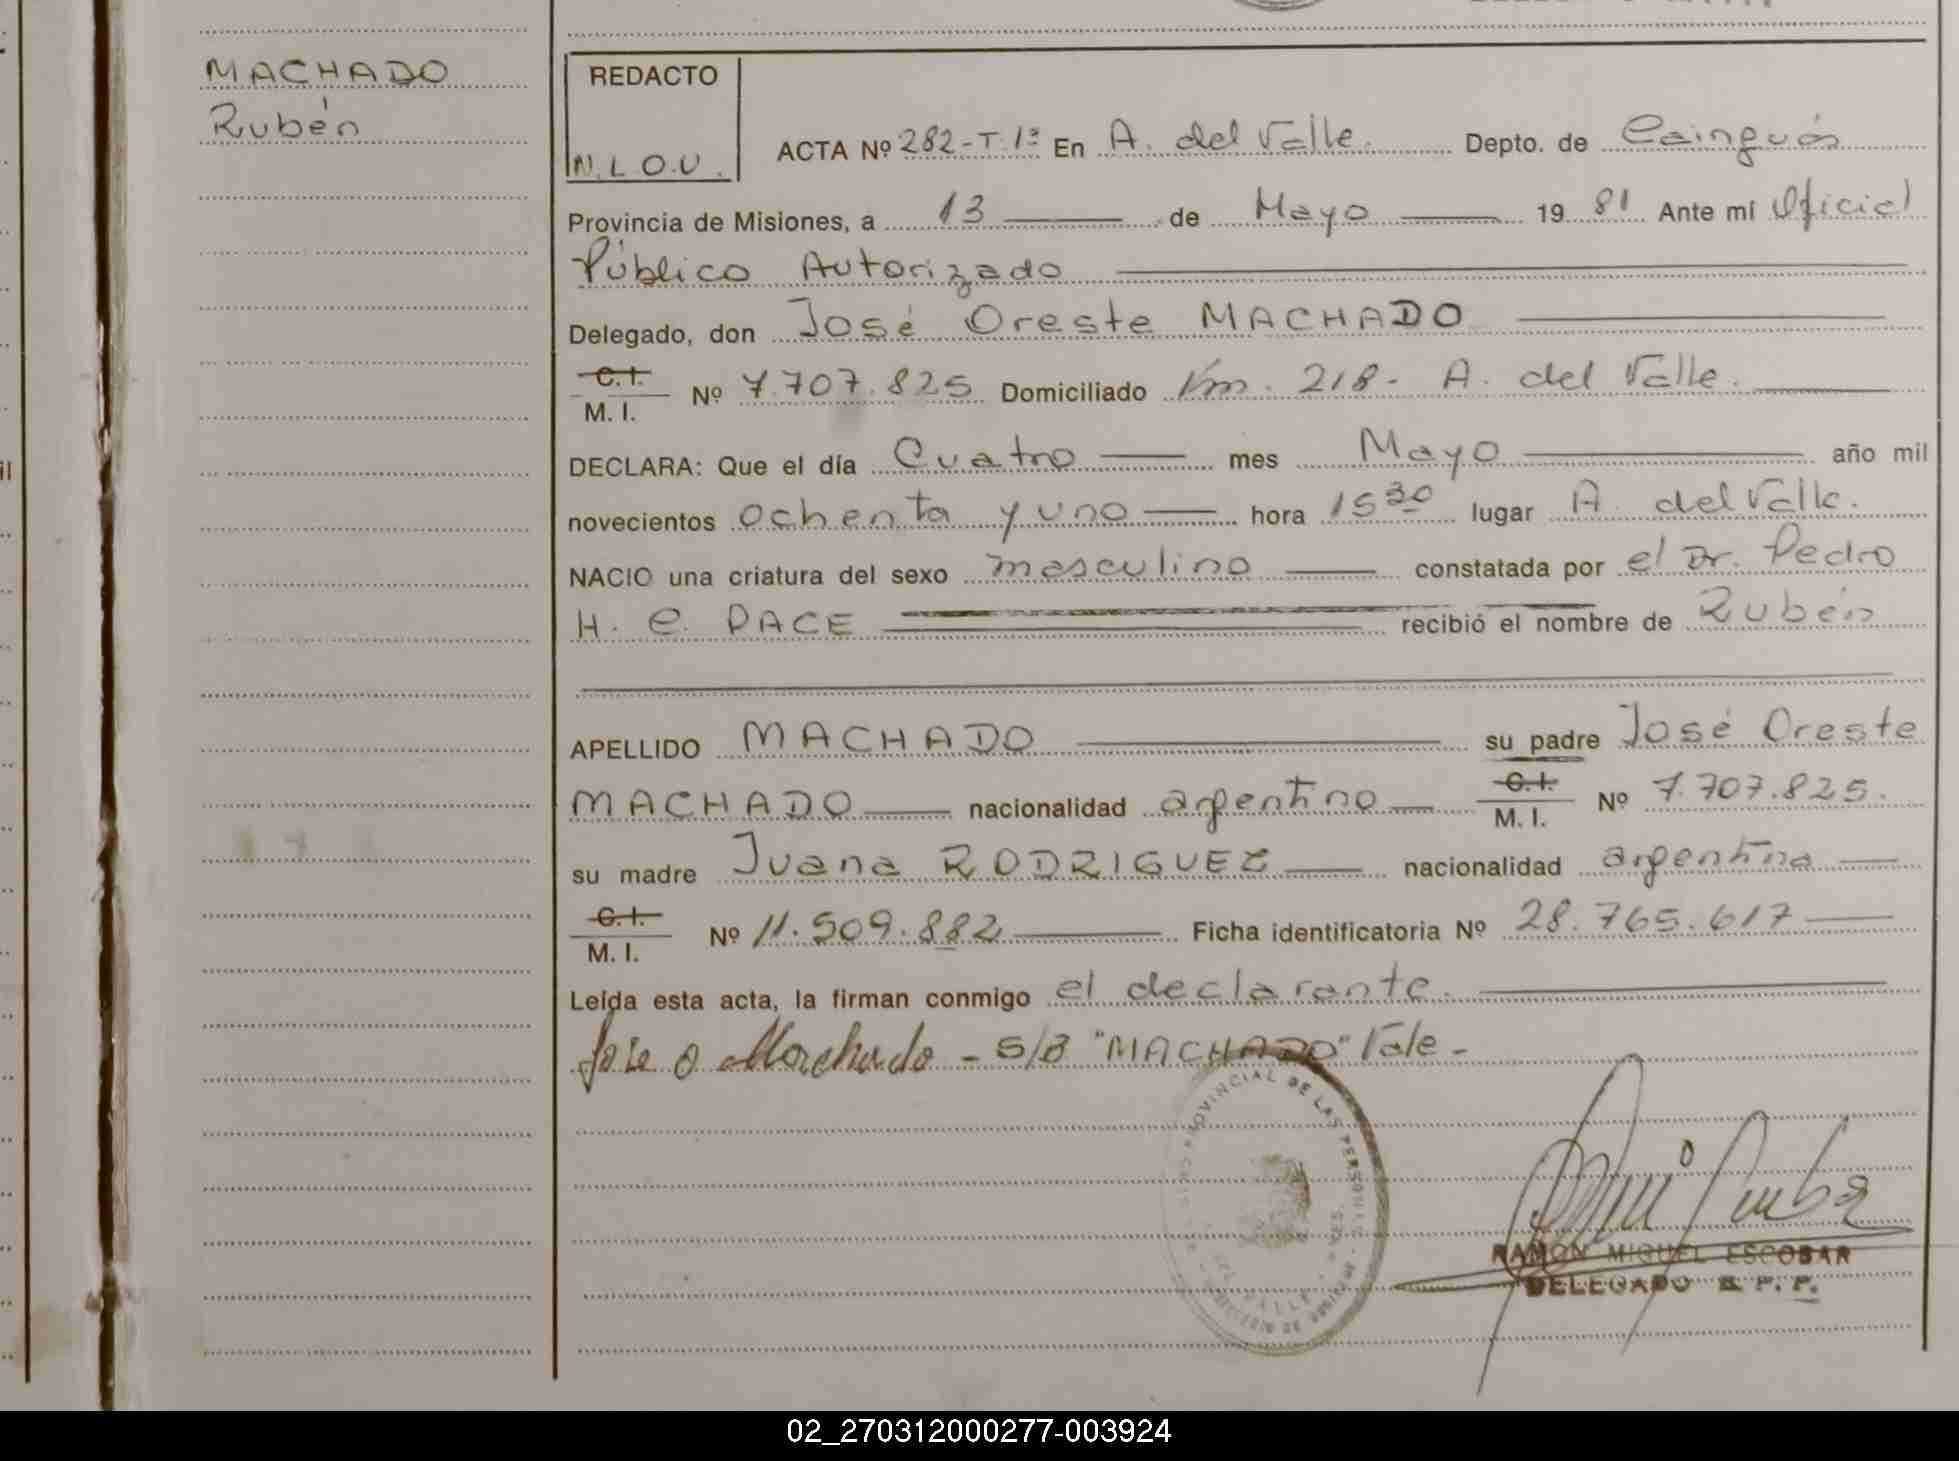 MACHADO
Rubén
REDACTO
N.L.O.U.
ACTA Nº 282-T.1º En A. del Valle. Depto. de Cainguás
Provincia de Misiones, a 13 de Mayo 19 81 Ante mí Oficial
Público Autorizado
Delegado, don José Oreste MACHADO
C.I.
M. I. Nº 7.707.825 Domiciliado Km. 218- A. del Valle.
DECLARA: Que el día Cuatro mes Mayo año mil
novecientos ochenta y uno hora 15 30 lugar A. del Valle.
NACIO una criatura del sexo masculino constatada por el Dr. Pedro
H. C. PACE recibió el nombre de Rubén
APELLIDO MACHADO su padre José Oreste
MACHADO nacionalidad argentino C.I. M. I. Nº 7.707.825.
su madre Juana RODRIGUEZ nacionalidad argentina
C.I.
M. I. Nº 11.509.882 Ficha identificatoria Nº 28.765.617
Leída esta acta, la firman conmigo el declarante.
Jose O Machado - S/B "MACHADO" Vale -
PROVINCIAL DE LAS PERSONAS
RAMON MIGUEL ESCOBAR
DELEGADO R.P.P.
02_270312000277-003924